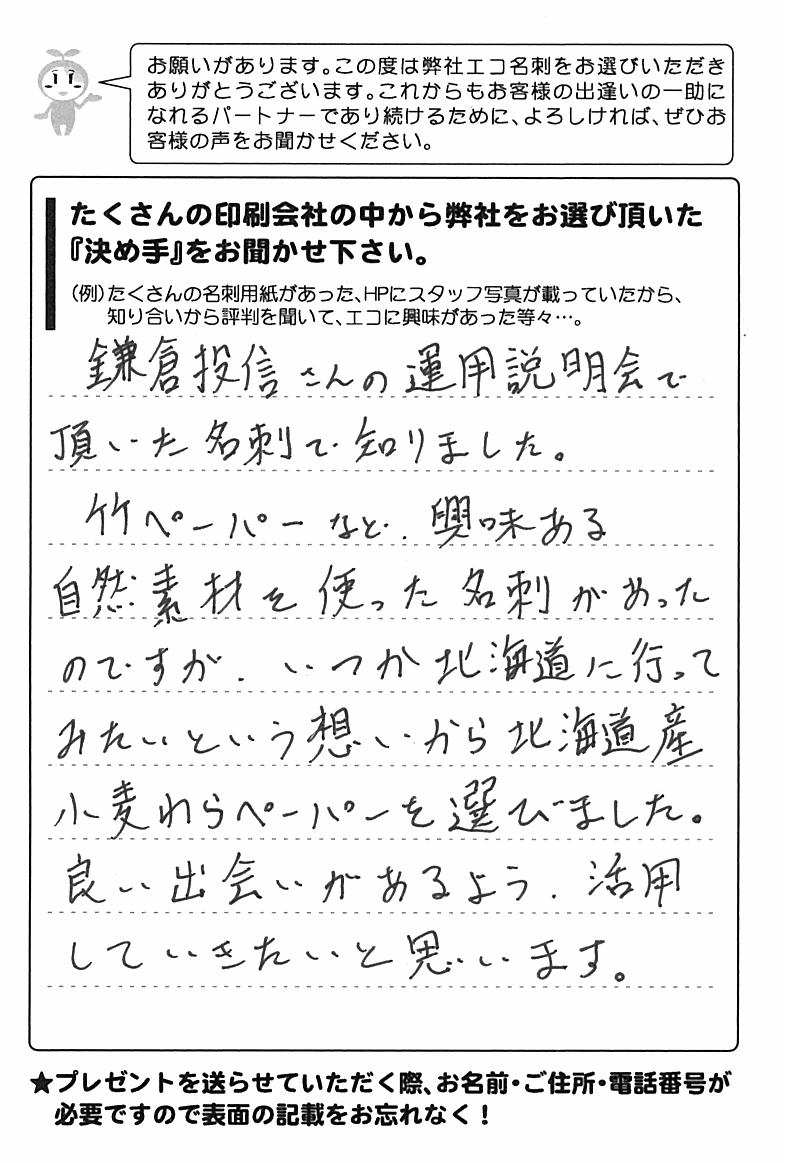 お願いがあります。この度は弊社エコ名刺をお選びいただき
ありがとうございます。これからもお客様の出逢いの一助に
なれるパートナーであり続けるために、よろしければ、ぜひお
客様の声をお聞かせください。
たくさんの印刷会社の中から弊社をお選び頂いた
『決め手』をお聞かせ下さい。
（例）たくさんの名刺用紙があった、HPにスタッフ写真が載っていたから、
知り合いから評判を聞いて、エコに興味があった等々…。
鎌倉投信さんの運用説明会で
頂いた名刺で知りました。
竹ペーパーなど、興味ある
自然素材を使った名刺があった
のですが、いつか北海道に行って
みたいという想いから北海道産
小麦わらペーパーを選びました。
良い出会いがあるよう、活用
していきたいと思います。
★プレゼントを送らせていただく際、お名前・ご住所・電話番号が
必要ですので表面の記載をお忘れなく！